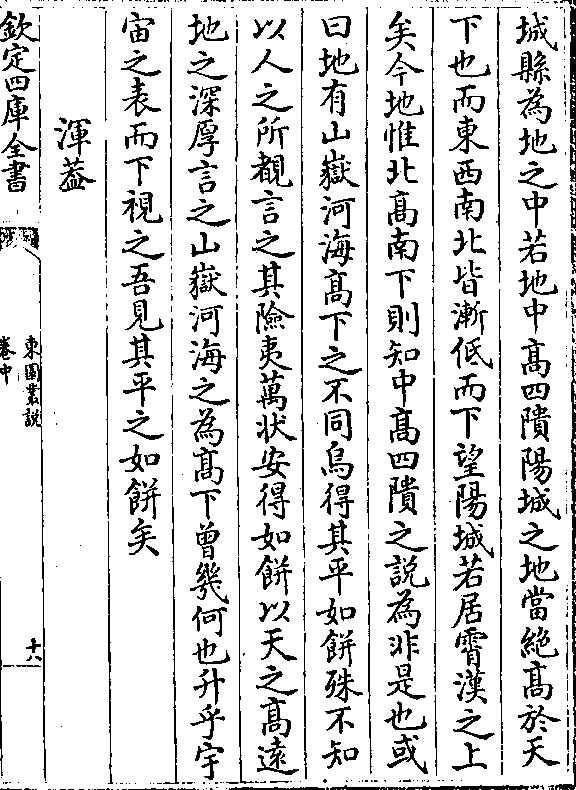 城縣為地之中若地中髙四隤陽城之地當絶髙於天
下也而東西南北皆漸低而下望陽城若居霄漢之上
矣今地惟北髙南下則知中髙四隤之説為非是也或
曰地有山嶽河海髙下之不同烏得其平如餅殊不知
以人之所覩言之其險夷萬状安得如餅以天之髙逺
地之深厚言之山嶽河海之為髙下曾幾何也升乎宇
宙之表而下視之吾見其平之如餅矣
渾葢
欽定四庫全書
東園叢説
卷中
十六